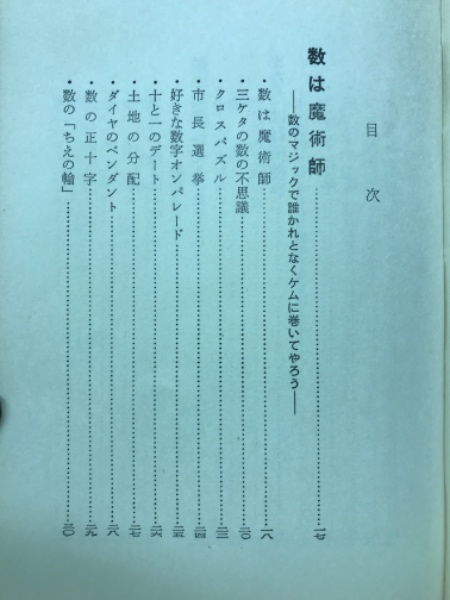 目次
数は魔術師……一七
——数のマジックで誰かれとなくケムに巻いてやろう——
・数は魔術師……一八
・三ケタの数の不思議……二〇
・クロスパズル……二三
・市長選挙……二四
・好きな数字オンパレード……二五
・十と一のデート……二六
・土地の分配……二七
・ダイヤのペンダント……二八
・数の正十字……二九
・数の「ちえの輪」……三〇